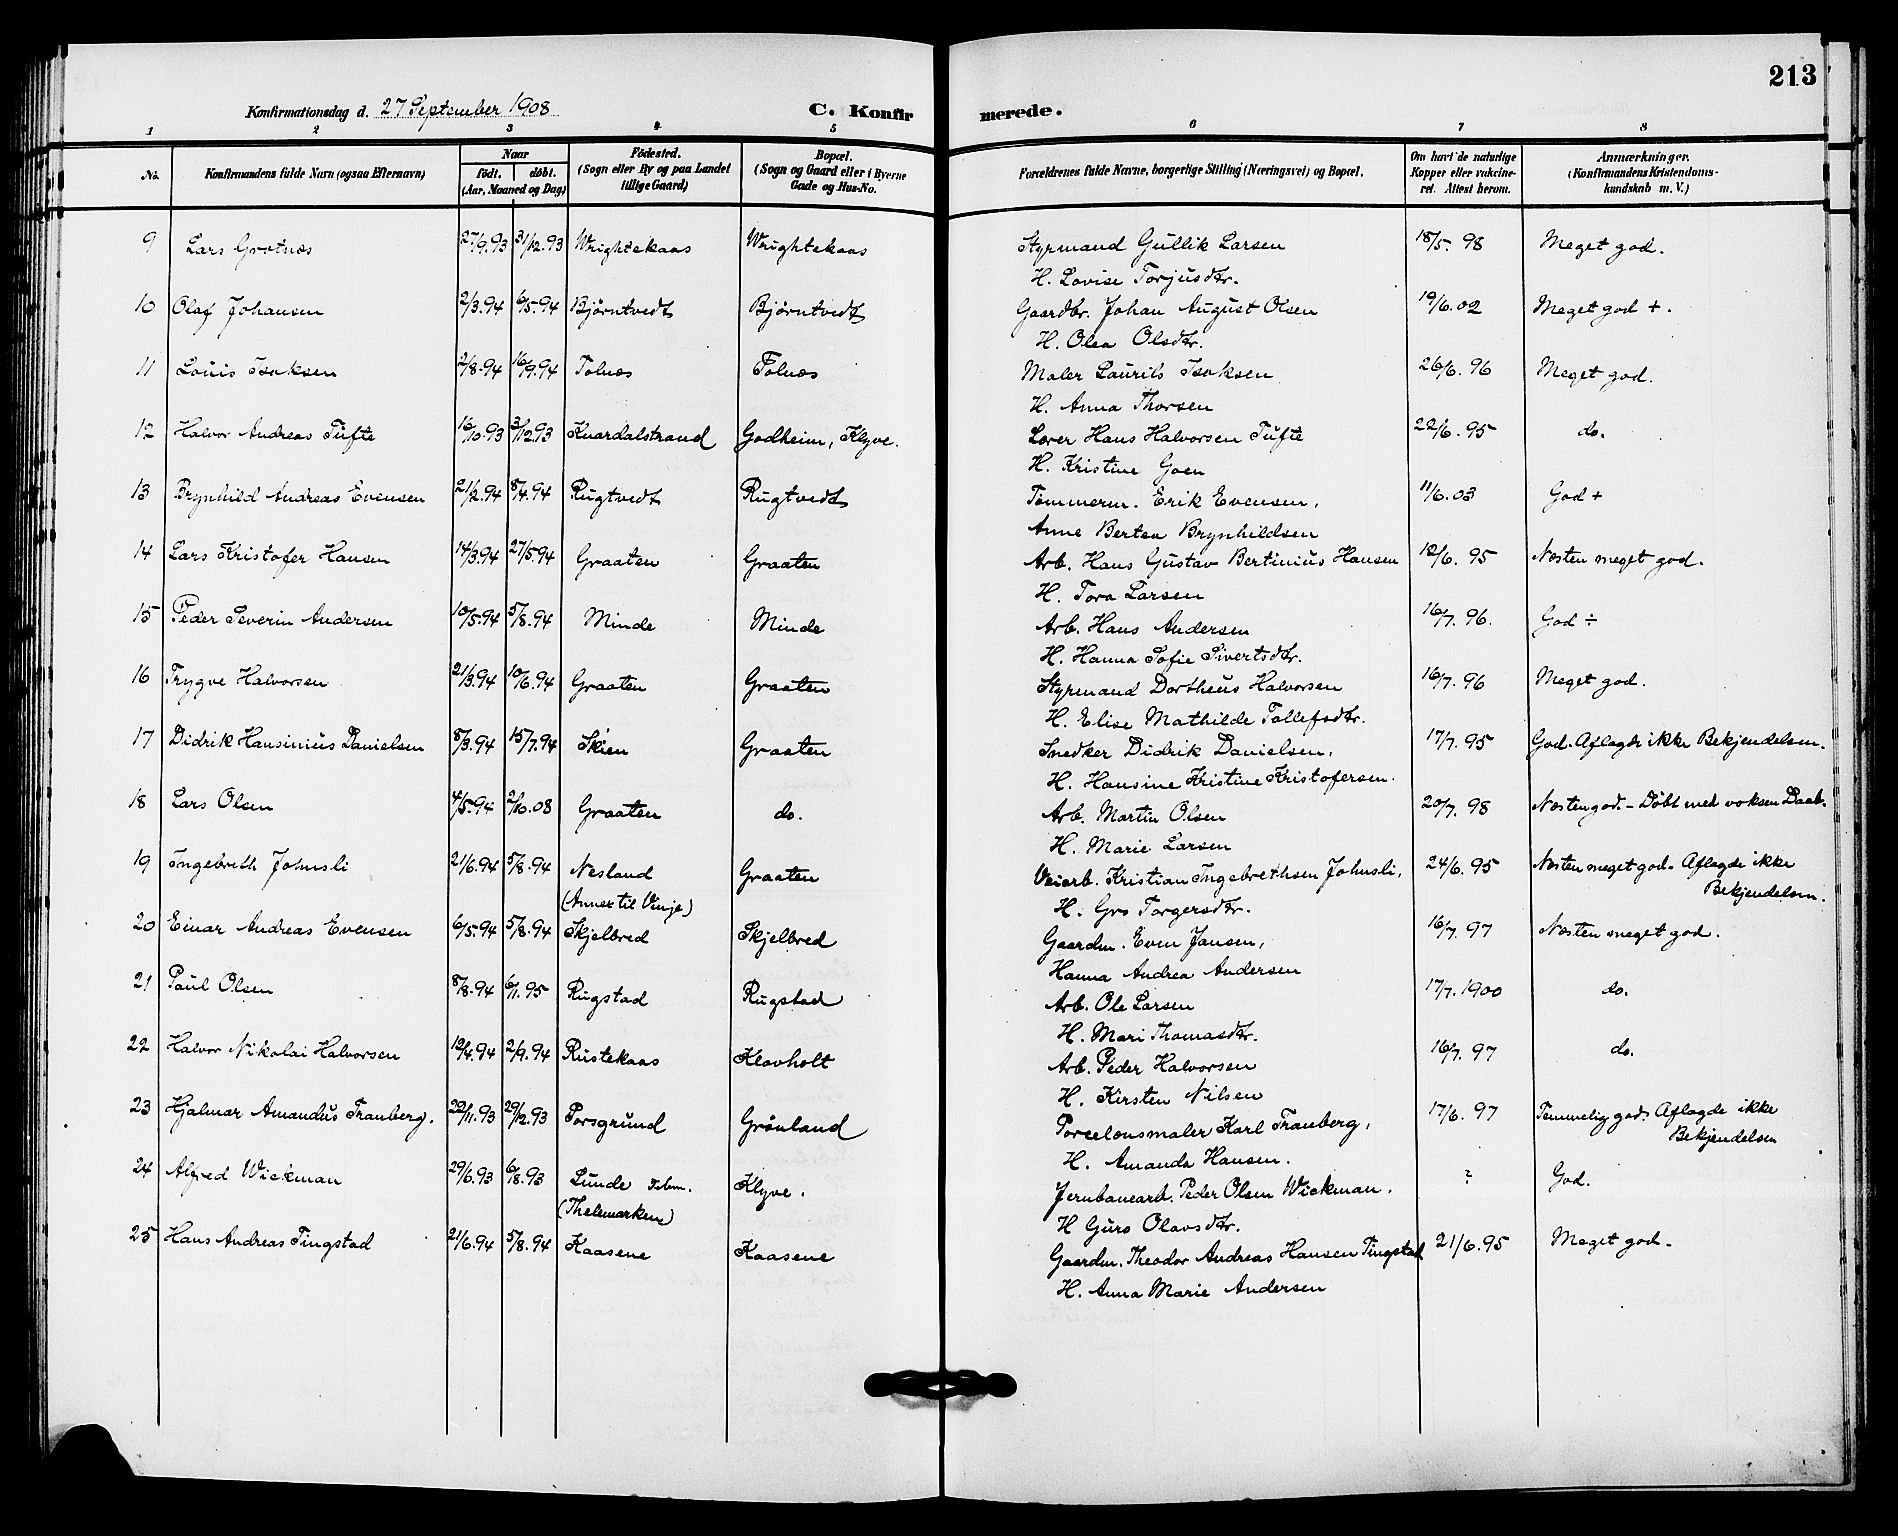 213
Konfirmationsdag d. 27 September 1908
C. Konfirmerede.
1 2 3 4 5 6 7 8
No. Konfirmandens fulde Navn (ogsaa Efternavn) Naar født. døbt. (Aar, Maaned og Dag) Fødested. (Sogn eller By og paa Landet tillige Gaard) Bopæl. (Sogn og Gaard eller i Byerne Gade og Hus-No. Forældrenes fulde Navne, borgerlige Stilling (Næringsvei) og Bopæl. Om havt de naturlige Kopper eller vakcineret. Attest herom. Anmærkninger. (Konfirmandens Kristendomskundskab m. V.)
9 Lars Grotnæs 27/9.93 31/12.93 Wrightekaas Wrightekaas Styrmand Gullik Larsen 18/5. 98 Meget god.
H. Lovise Torjusdtr.
10 Olaf Johansen 2/3.94 6/5.94 Bjørntvedt Bjørntvedt Gaardbr. Johan August Olsen 19/6.02 Meget god +.
H. Olea Olsdtr.
11 Louis Isaksen 2/8.94 16/9.94 Tolnæs Tolnæs Maler Laurits Isaksen 26/6. 96 Meget god.
H. Anna Thorsen
12 Halvor Andreas Tufte 16/10.93 3/12.93 Knardalstrand Godheim, Klyve. Lærer Hans Halvorsen Tufte 22/6. 95 do.
H. Kristine Goen
13 Brynhild Andreas Evensen 21/2.94 8/4.94 Rugtvedt Rugtvedt Tømmerm. Erik Evensen, 11/6.03 God +
Anne Bertea Brynhildsen
14 Lars Kristofer Hansen 14/3.94 27/5.94 Graaten Graaten Arb. Hans Gustav Bertinius Hansen 12/6. 95 Næsten meget god.
H. Tora Larsen
15 Peder Severin Andersen 10/5.94 5/8.94 Minde Minde Arb. Hans Andersen 16/7. 96. God ÷
H. Hanna Sofie Sivertsdtr.
16 Trygve Halvorsen 21/3.94 10/6.94 Graaten Graaten Styrmand Dortheus Halvorsen 16/7. 96 Meget god.
H. Elise Mathilde Tollefsdtr.
17 Didrik Hansinius Danielsen 8/3.94 15/7.94 Skien Graaten Snedker Didrik Danielsen, 17/7. 95 God. Aflagde ikke Bekjendelsen.
H. Hansine Kristine Kristofersen.
18 Lars Olsen 4/5.94 2/10.08 Graaten do. Arb. Martin Olsen 20/7. 98 Næsten god. – Døbt med voksen Daab.
H. Marie Larsen
19 Ingebreth Johnsli 21/6.94 5/8.94 Nesland Graaten Veiarb. Kristian Ingebrethsen Johnsli, 24/6. 95 Næsten meget god. Aflagde ikke
(Annex til Vinje) H. Gro Torgersdtr. Bekjendelsen.
20 Einar Andreas Evensen 6/5.94 5/8.94 Skjelbred Skjelbred Gaardm. Even Jansen, 16/7. 97 Næsten meget god.
Hanna Andrea Andersen
21 Paul Olsen 8/8.94 6/1.95 Rugstad Rugstad Arb. Ole Larsen 17/7.1900 do.
H. Mari Thomasdtr.
22 Halvor Nikolai Halvorsen 12/4.94 2/9.94 Rustekaas Klovholt Arb. Peder Halvorsen 16/7. 97 do.
H. Kirsten Nilsen
23 Hjalmar Amandus Tranberg. 22/11.93 29/12.93 Porsgrund Grønland Porcelænsmaler Karl Tranberg, 17/6. 97 Temmelig god. Aflagde ikke
H. Amanda Hansen. Bekjendelsen
24 Alfred Wickman 29/6.93 6/8.93 Lunde Klyve. Jernbanearb. Peder Olsen Wickman. ? God.
(Thelemarken) H Guro Olavsdtr.
25 Hans Andreas Tingstad 21/6.94 5/8.94 Kaasene Kaasene Gaardm. Theodor Andreas Hansen Tingstad 21/6.95 Meget god.
H. Anna Marie Andersen